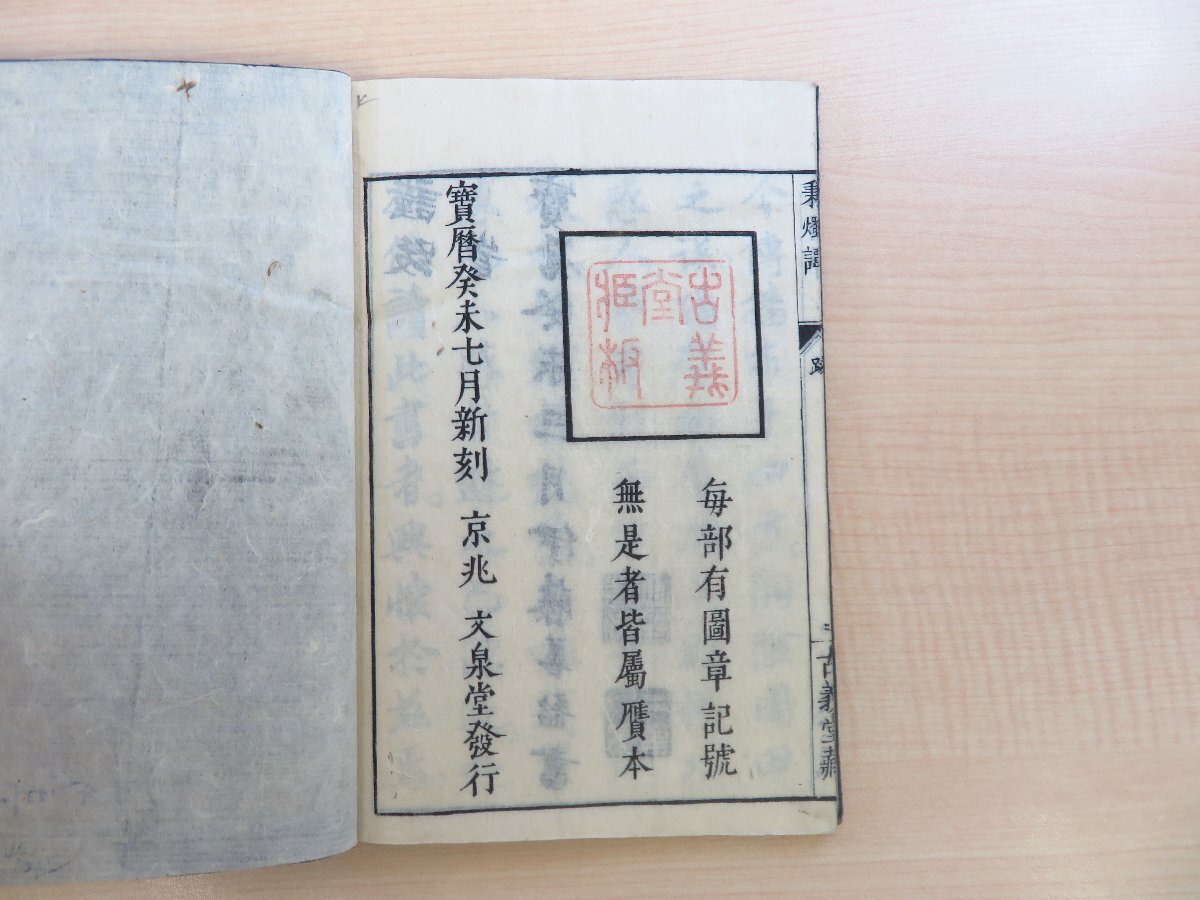 秉燭譚
跋
古義堂藏
古義
堂
姬板
每部有圖章記號
無是者皆屬贋本
寶曆癸未七月新刻 京兆 文泉堂發行